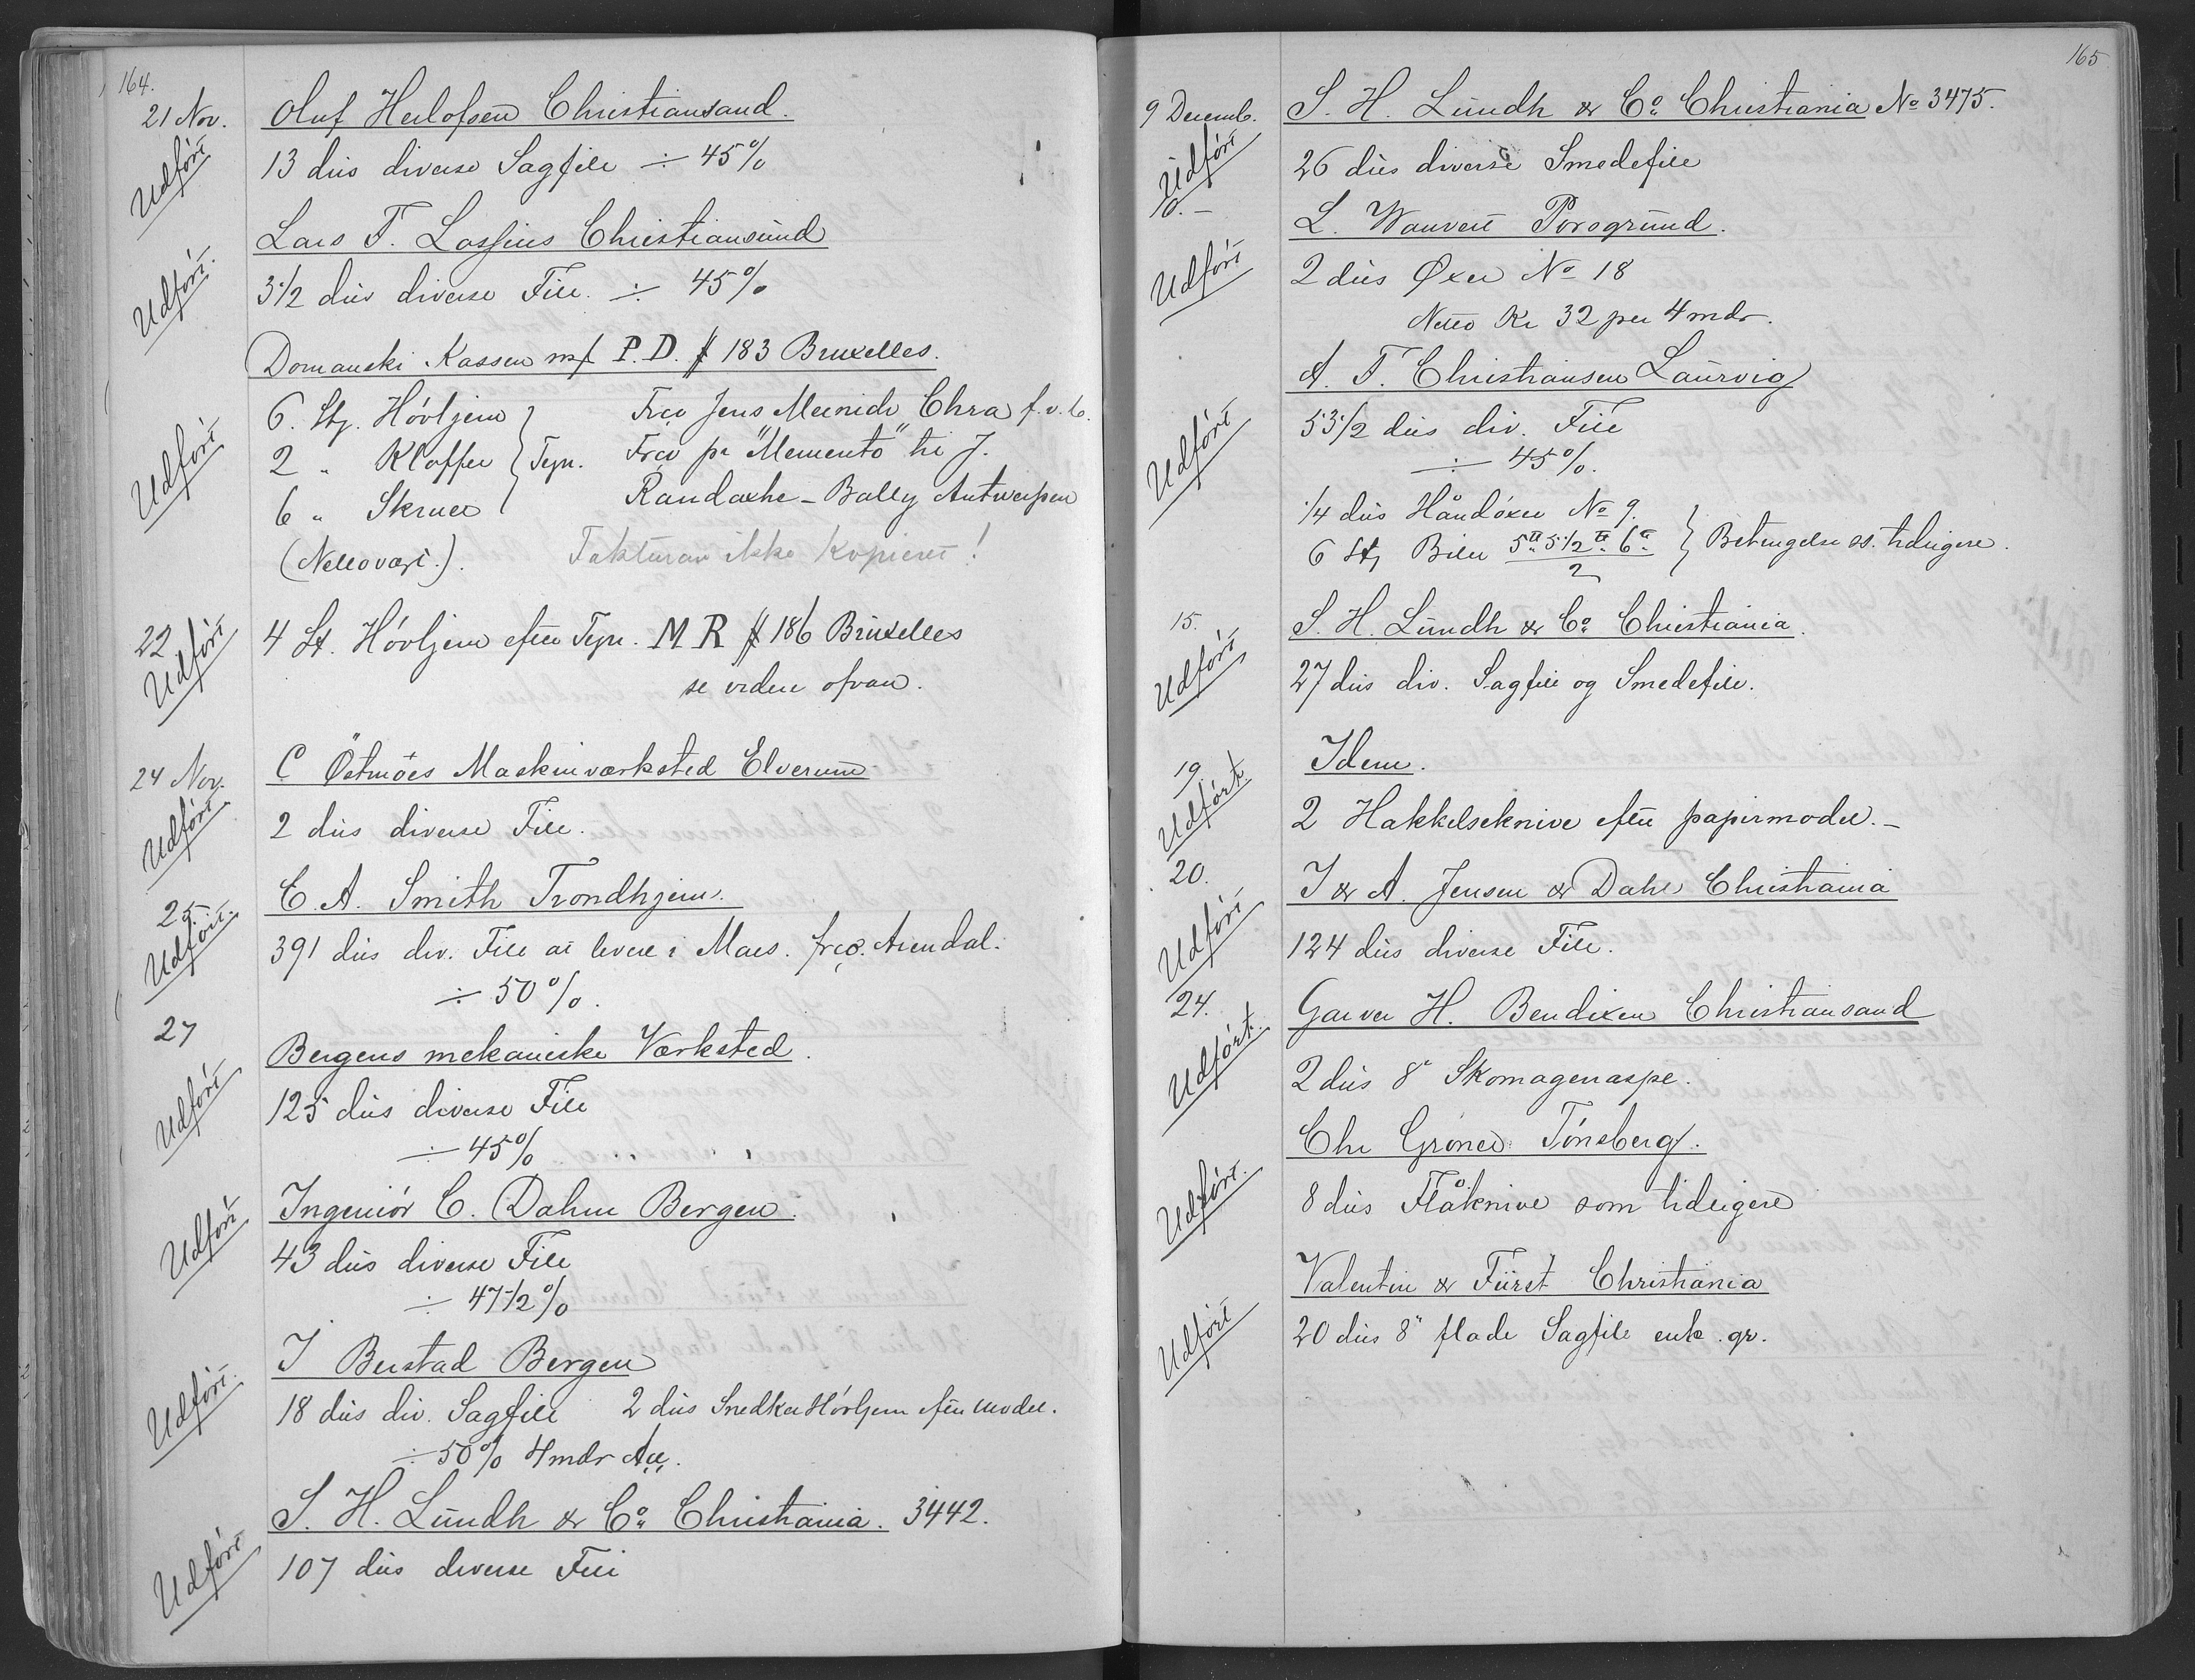 164.
21 Nov. Oluf Herlofsen Christiansand.
Udført 13 dus diverse Sagfile ÷ 45%
Lars T. Lossius Christiansund
Udført. 3 1/2 dus diverse File. ÷ 45%
Domanski Kassen mf P.D. # 183 Bruxelles.
6. St. Hövljern } Frco Jens Meinich Chra f.v.b.
Udført 2 " Kloffer } Tegn. Frco pr "Memento" til J.
6 " Skruer } Randaxhe - Bally Antwerpen
(Nettovægt.). Fakturan ikke Kopieret!
22 4 St. Hövljern efter Tegn. M R # 186 Bruxelles
Udført se videre ofvan.
24 Nov. C Östmöes Maskinværksted Elverum
Udført. 2 dus diverse File.
25. C. A. Smith Trondhjem.
Udført. 391 dus div. File at levere i Mars. frco. Arendal.
÷ 50%.
27 Bergens mekaniske Værksted.
Udført 125 dus diverse File
÷ 45%
Ingeniör C. Dahm Bergen.
Udført 43 dus diverse File
÷ 47 1/2 %
J Berstad Bergen
Udført. 18 dus div. Sagfile 2 dus Snedker Hövljern efter model.
÷ 50% 4 mdr Acc.
S. H. Lundh & Co. Christiania. 3442.
Udført 107 dus diverse File
165
9 Decemb. S. H. Lundh & Co. Christiania No 3475.
Udført 26 dus diverse Smedefile
10. - L. Wauvert Porsgrund.
Udført 2 dus Øxer No 18
Netto Kr 32 per 4 mdr.
A. T. Christiansen Laurvig
53 1/2 dus div. File
Udført ÷ 45%.
1/4 dus Håndöxer No 9. }
6 St, Biler 5" 5 1/2" 6" / 2 } Betingelse ss. tidligere.
15. S. H. Lundh & Co. Christiania.
Udført 27 dus div. Sagfile og Smedefile.
19. Idem.
Udført. 2 Hakkelseknive efter papirmodel. -
20. J & A. Jensen & Dahl Christiania
Udført 124 dus diverse File.
24. Garver H. Bendixen Christiansand
Udført. 2 dus 8" Skomagerraspe.
Chr Gröner Tönsberg.
Udført. 8 dus Flåknive som tidligere
Valentin & Fürst Christiania
Udført 20 dus 8" flade Sagfile enk. gr.